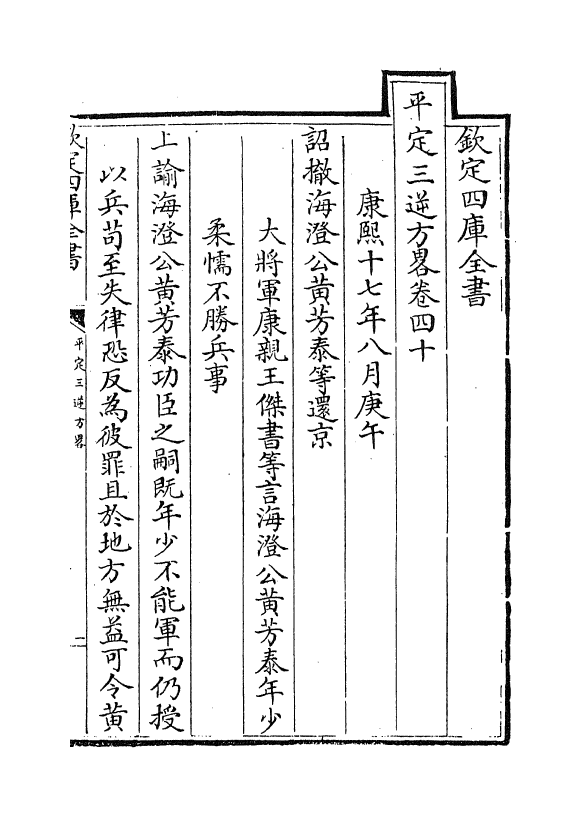 欽定四庫全書
平定三逆方畧卷四十
康熙十七年八月庚午
詔撤海澄公黄芳泰等還京
大將軍康親王傑書等言海澄公黄芳泰年少
柔懦不勝兵事
上諭海澄公黄芳泰功臣之嗣既年少不能軍而仍授
以兵苟至失律恐反為彼罪且於地方無益可令黄
欽定四庫全書
平定三逆方畧